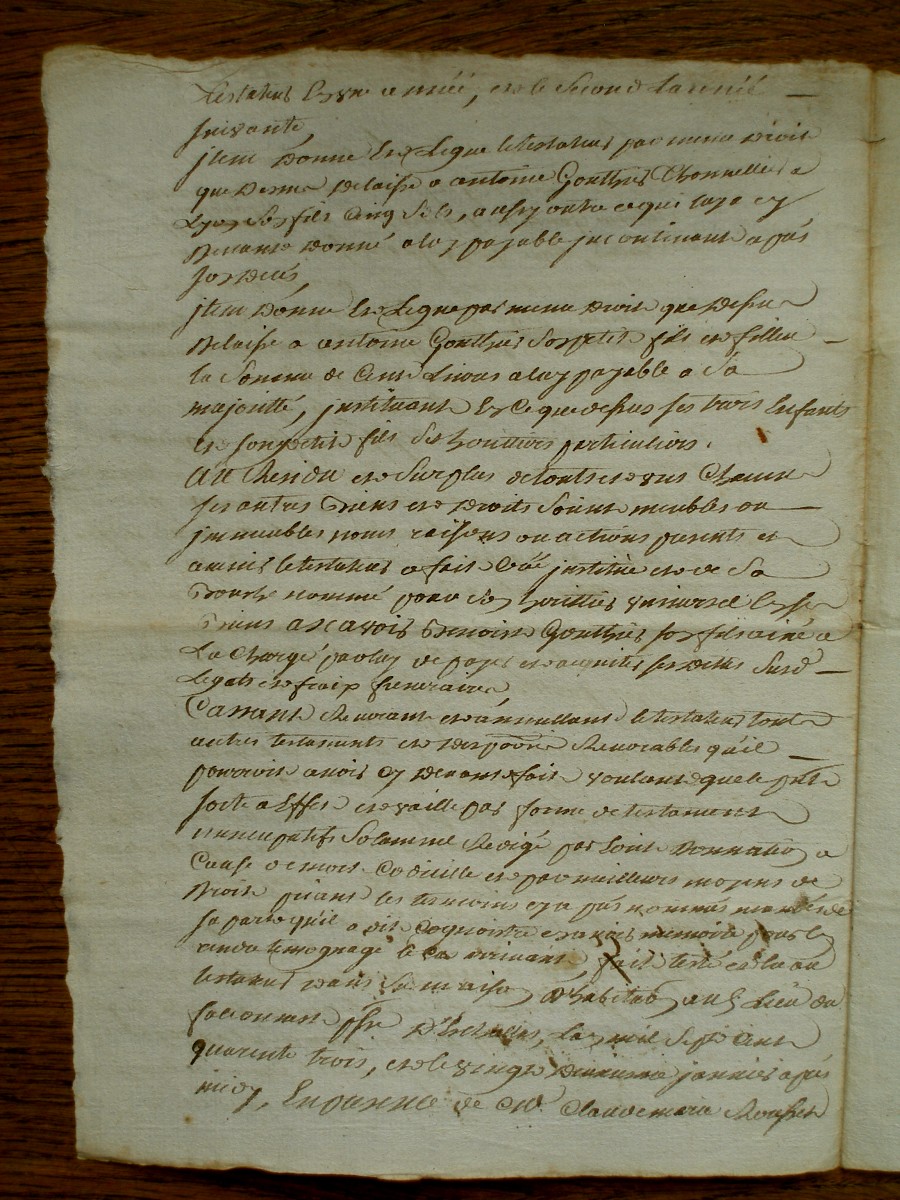 testateur En une année, et le second Lannée
suivante,
jtem Donne Et Legue le testateur par meme Droit
que Dessus Delaisse a antoine Gonthier a
Lyon son fils Cinq Sols, outre ce que luy a cy
Devant Donné a luy payable jncontinant apés
son Deces,
jtem Donne Et Legue par meme Droit que Dessus
Delaisse a antoine Gonthier son petit fils et filleu
la Somme de Cent Livres a luy payable a Sa
majorité, jnstituant En Ce que dessus ses trois Enfants
et son petit fils Ses heritiers particuliers.
Au Residu et Surplus de touts et uns Chacuns
ses autres Biens et Droits Soient meubles ou
jmmeubles noms raisons ou actions presents et
avenir le testateur a fait Créé jnstitué et de Sa
Bouche nommé pour Son heritier universel Esd.
Biens ascavoir Benoist Gonthier son fils ainé a
La Charge par luy de payer et acquiter ses Dettes Susd
Legats et fraix funeraires
Cassant Revocant et annullant le testateur tout
autres testaments et Revocables qu'il
pourroit avoir cy Devant fait voulant que le pnt
sorte a Effet et vaille par forme de testament
nuncupatif Solamnel Redigé par Ecrit Donnation a
Cause de mort Codicille et par meilleurs moyens de
Droit priant les temoins cy apés nommés mandés de
sa part qu'il a dit Cognoitre En avoir memoire pour En
rendre temognage le Cas avenant fait leu et au
testateur Dans Sa maison D'habitaōn au Lieu du
psse D'Eschallas, L'an mil Sept Cent
quarente trois, et le vingt Deuxieme janvier apés
midy, En presence de Mr. Claude marie Rousset